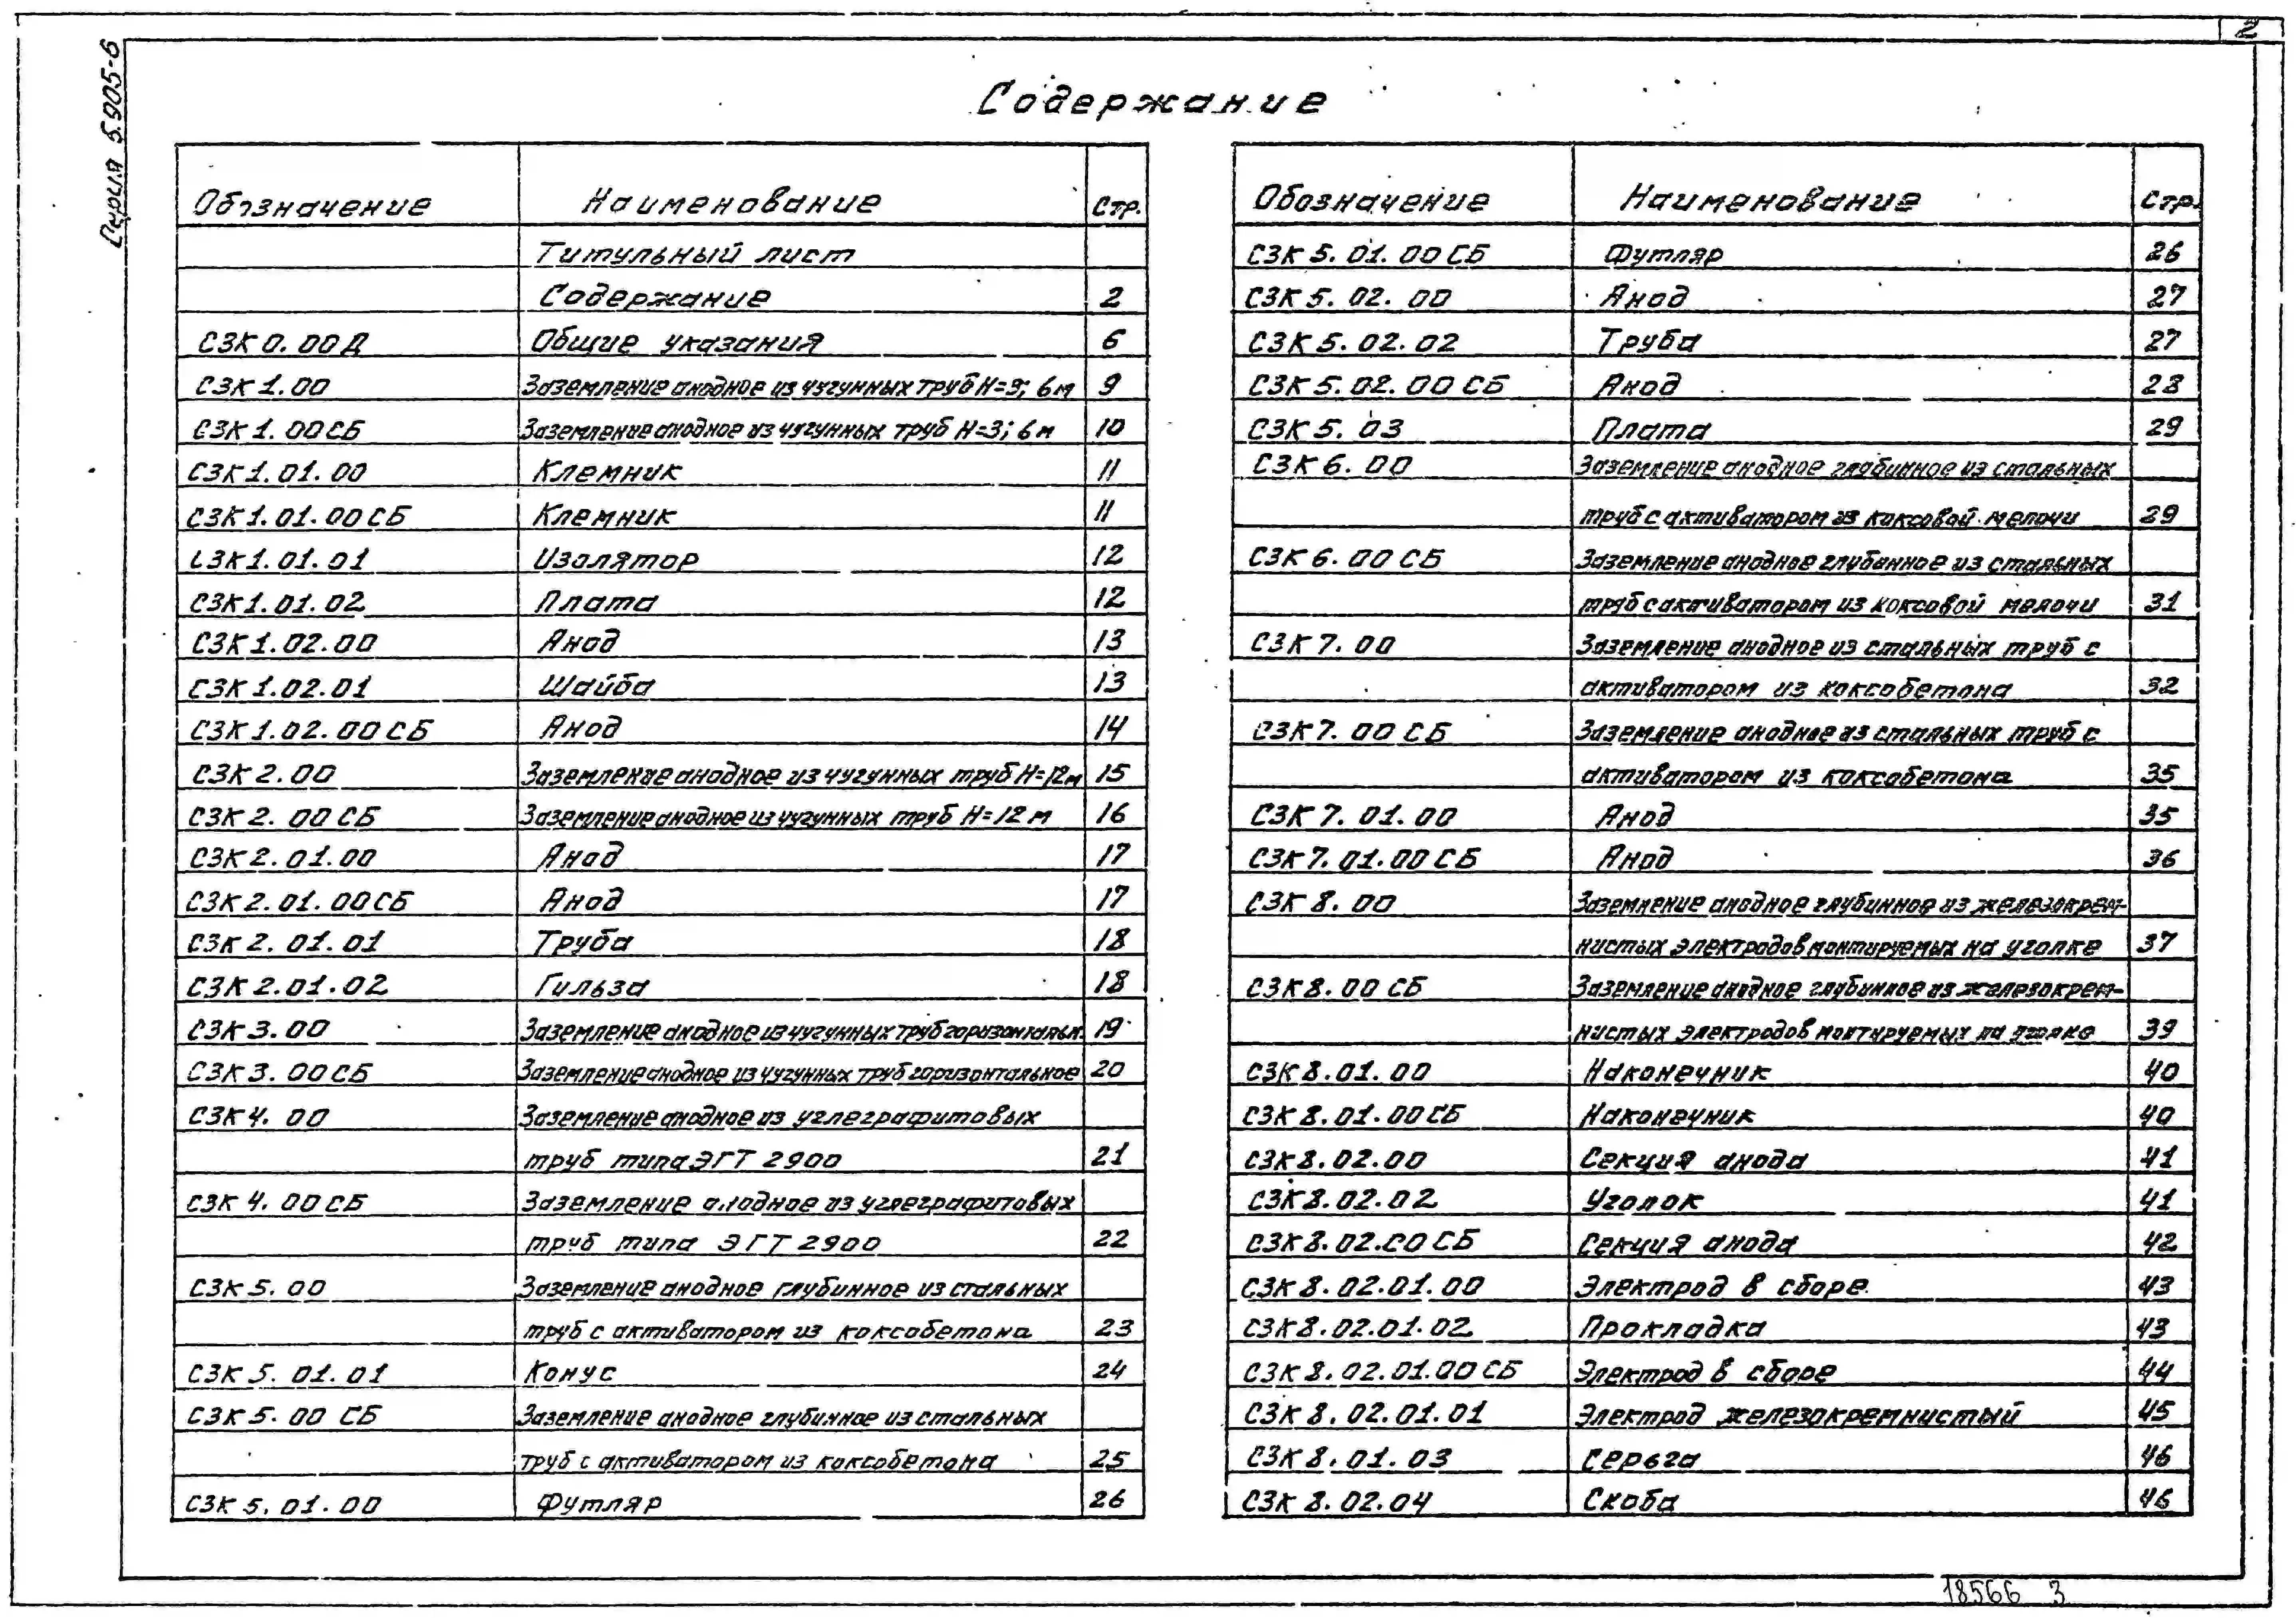 2
Серия 5.905-6
Содержание
Обозначение Наименование Стр.
Титульный лист
Содержание 2
СЗК 0.00Д Общие указания 6
СЗК 1.00 Заземление анодное из чугунных труб Н=3; 6м 9
СЗК 1.00СБ Заземление анодное из чугунных труб Н=3; 6м 10
СЗК 1.01.00 Клемник 11
СЗК 1.01.00СБ Клемник 11
СЗК 1.01.01 Изолятор 12
СЗК 1.01.02 Плата 12
СЗК 1.02.00 Анод 13
СЗК 1.02.01 Шайба 13
СЗК 1.02.00СБ Анод 14
СЗК 2.00 Заземление анодное из чугунных труб Н=12м 15
СЗК 2.00СБ Заземление анодное из чугунных труб Н=12м 16
СЗК 2.01.00 Анод 17
СЗК 2.01.00СБ Анод 17
СЗК 2.01.01 Труба 18
СЗК 2.01.02 Гильза 18
СЗК 3.00 Заземление анодное из чугунных труб горизонтальн. 19
СЗК 3.00СБ Заземление анодное из чугунных труб горизонтальное 20
СЗК 4.00 Заземление анодное из углеграфитовых
труб типа ЭГТ 2900 21
СЗК 4.00СБ Заземление анодное из углеграфитовых
труб типа ЭГТ 2900 22
СЗК 5.00 Заземление анодное глубинное из стальных
труб с активатором из коксобетона 23
СЗК 5.01.01 Конус 24
СЗК 5.00 СБ Заземление анодное глубинное из стальных
труб с активатором из коксобетона 25
СЗК 5.01.00 Футляр 26
Обозначение Наименование Стр.
СЗК 5.01.00СБ Футляр 26
СЗК 5.02.00 Анод 27
СЗК 5.02.02 Труба 27
СЗК 5.02.00СБ Анод 28
СЗК 5.03 Плата 29
СЗК 6.00 Заземление анодное глубинное из стальных
труб с активатором из коксовой мелочи 29
СЗК 6.00СБ Заземление анодное глубинное из стальных
труб с активатором из коксовой мелочи 31
СЗК 7.00 Заземление анодное из стальных труб с
активатором из коксобетона 32
СЗК 7.00 СБ Заземление анодное из стальных труб с
активатором из коксобетона 35
СЗК 7.01.00 Анод 35
СЗК 7.01.00СБ Анод 36
СЗК 8.00 Заземление анодное глубинное из железокрем-
нистых электродов монтируемых на уголке 37
СЗК 8.00 СБ Заземление анодное глубинное из железокрем-
нистых электродов монтируемых на уголке 39
СЗК 8.01.00 Наконечник 40
СЗК 8.01.00СБ Наконечник 40
СЗК 8.02.00 Секция анода 41
СЗК 8.02.02 Уголок 41
СЗК 8.02.00СБ Секция анода 42
СЗК 8.02.01.00 Электрод в сборе 43
СЗК 8.02.01.02 Прокладка 43
СЗК 8.02.01.00СБ Электрод в сборе 44
СЗК 8.02.01.01 Электрод железокремнистый 45
СЗК 8.01.03 Серьга 46
СЗК 8.02.04 Скоба 46
18566 3